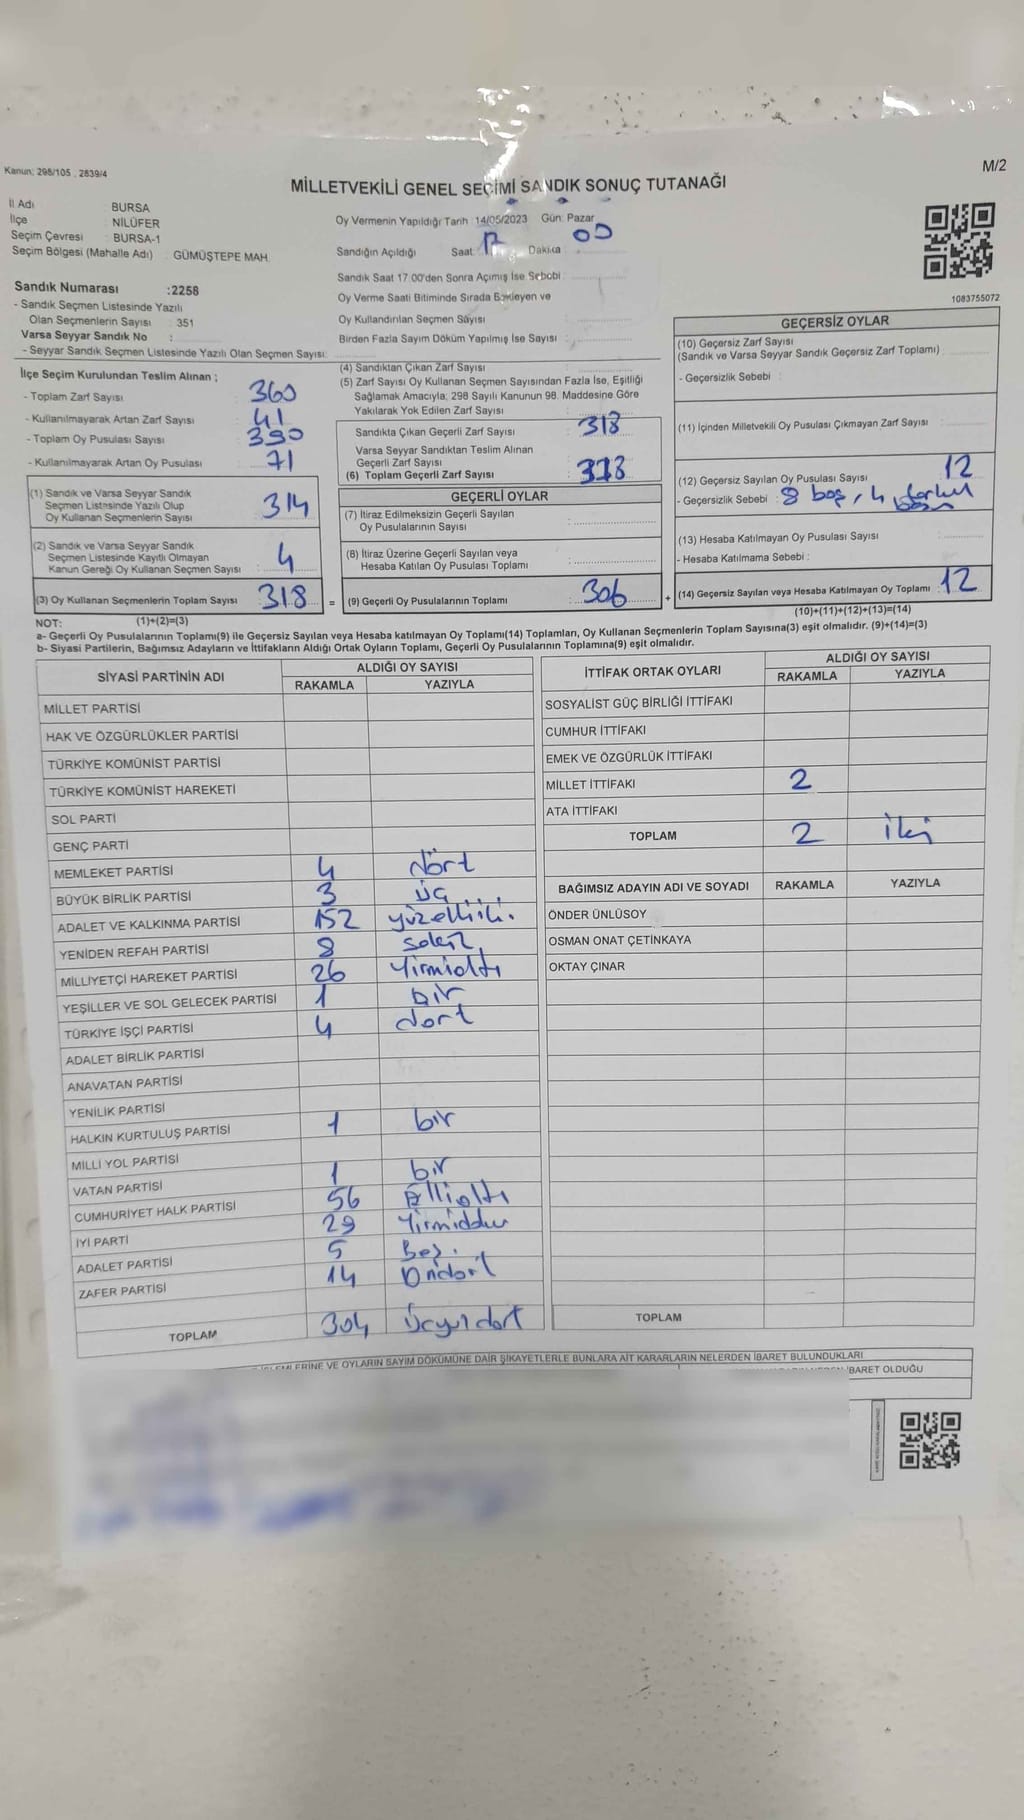 Kanun: 298/105 , 2839/4
M/2
MİLLETVEKİLİ GENEL SEÇİMİ SANDIK SONUÇ TUTANAĞI
İl Adı BURSA
İlçe NİLÜFER
Seçim Çevresi : BURSA-1
Seçim Bölgesi (Mahalle Adı) : GÜMÜŞTEPE MAH.
Sandık Numarası :2258
- Sandık Seçmen Listesinde Yazılı
Olan Seçmenlerin Sayısı : 351
Varsa Seyyar Sandık No :
- Seyyar Sandık Seçmen Listesinde Yazılı Olan Seçmen Sayısı:
Oy Vermenin Yapıldığı Tarih :14/05/2023 Gün: Pazar
Sandığın Açıldığı Saat: 17 Dakika 00
Sandık Saat 17:00'den Sonra Açımış İse Sebebi :
Oy Verme Saati Bitiminde Sırada Bekleyen ve
Oy Kullandırılan Seçmen Sayısı :
Birden Fazla Sayım Döküm Yapılmış İse Sayısı :
1083755072
İlçe Seçim Kurulundan Teslim Alınan ;
- Toplam Zarf Sayısı : 360
- Kullanılmayarak Artan Zarf Sayısı : 41
- Toplam Oy Pusulası Sayısı : 390
- Kullanılmayarak Artan Oy Pusulası : 71
(1) Sandık ve Varsa Seyyar Sandık
Seçmen Listesinde Yazılı Olup
Oy Kullanan Seçmenlerin Sayısı : 314
(2) Sandık ve Varsa Seyyar Sandık
Seçmen Listesinde Kayıtlı Olmayan
Kanun Gereği Oy Kullanan Seçmen Sayısı : 4
(3) Oy Kullanan Seçmenlerin Toplam Sayısı : 318 =
(4) Sandıktan Çıkan Zarf Sayısı :
(5) Zarf Sayısı Oy Kullanan Seçmen Sayısından Fazla İse, Eşitliği
Sağlamak Amacıyla; 298 Sayılı Kanunun 98. Maddesine Göre
Yakılarak Yok Edilen Zarf Sayısı :
Sandıkta Çıkan Geçerli Zarf Sayısı : 318
Varsa Seyyar Sandıktan Teslim Alınan
Geçerli Zarf Sayısı :
(6) Toplam Geçerli Zarf Sayısı : 318
GEÇERLİ OYLAR
(7) İtiraz Edilmeksizin Geçerli Sayılan
Oy Pusulalarının Sayısı :
(8) İtiraz Üzerine Geçerli Sayılan veya
Hesaba Katılan Oy Pusulası Toplamı :
(9) Geçerli Oy Pusulalarının Toplamı : 306 +
GEÇERSİZ OYLAR
(10) Geçersiz Zarf Sayısı
(Sandık ve Varsa Seyyar Sandık Geçersiz Zarf Toplamı) :
- Geçersizlik Sebebi :
(11) İçinden Milletvekili Oy Pusulası Çıkmayan Zarf Sayısı :
(12) Geçersiz Sayılan Oy Pusulası Sayısı : 12
- Geçersizlik Sebebi : 8 boş, 4
(13) Hesaba Katılmayan Oy Pusulası Sayısı :
- Hesaba Katılmama Sebebi :
(14) Geçersiz Sayılan veya Hesaba Katılmayan Oy Toplamı : 12
NOT: (1)+(2)=(3)
(10)+(11)+(12)+(13)=(14)
a- Geçerli Oy Pusulalarının Toplamı(9) ile Geçersiz Sayılan veya Hesaba katılmayan Oy Toplamı(14) Toplamları, Oy Kullanan Seçmenlerin Toplam Sayısına(3) eşit olmalıdır. (9)+(14)=(3)
b- Siyasi Partilerin, Bağımsız Adayların ve İttifakların Aldığı Ortak Oyların Toplamı, Geçerli Oy Pusulalarının Toplamına(9) eşit olmalıdır.
SİYASİ PARTİNİN ADI ALDIĞI OY SAYISI
RAKAMLA YAZIYLA
MİLLET PARTİSİ
HAK VE ÖZGÜRLÜKLER PARTİSİ
TÜRKİYE KOMÜNİST PARTİSİ
TÜRKİYE KOMÜNİST HAREKETİ
SOL PARTİ
GENÇ PARTİ
MEMLEKET PARTİSİ 4 dört
BÜYÜK BİRLİK PARTİSİ 3 üç
ADALET VE KALKINMA PARTİSİ 152 yüzelliiki
YENİDEN REFAH PARTİSİ 8 sekiz
MİLLİYETÇİ HAREKET PARTİSİ 26 Yirmialtı
YEŞİLLER VE SOL GELECEK PARTİSİ 1 bir
TÜRKİYE İŞÇİ PARTİSİ 4 dort
ADALET BİRLİK PARTİSİ
ANAVATAN PARTİSİ
YENİLİK PARTİSİ
HALKIN KURTULUŞ PARTİSİ 1 bir
MİLLİ YOL PARTİSİ
VATAN PARTİSİ 1 bir
CUMHURİYET HALK PARTİSİ 56 Ellialtı
İYİ PARTİ 29
ADALET PARTİSİ 5 Beş
ZAFER PARTİSİ 14 Ondört
TOPLAM 304 Üçyüzdört
İTTİFAK ORTAK OYLARI ALDIĞI OY SAYISI
RAKAMLA YAZIYLA
SOSYALİST GÜÇ BİRLİĞİ İTTİFAKI
CUMHUR İTTİFAKI
EMEK VE ÖZGÜRLÜK İTTİFAKI
MİLLET İTTİFAKI 2
ATA İTTİFAKI
TOPLAM 2 iki
BAĞIMSIZ ADAYIN ADI VE SOYADI RAKAMLA YAZIYLA
ÖNDER ÜNLÜSOY
OSMAN ONAT ÇETİNKAYA
OKTAY ÇINAR
TOPLAM
VE OYLARIN SAYIM DÖKÜMÜNE DAİR ŞİKAYETLERLE BUNLARA AİT KARARLARIN NELERDEN İBARET BULUNDUKLARI
İBARET OLDUĞU